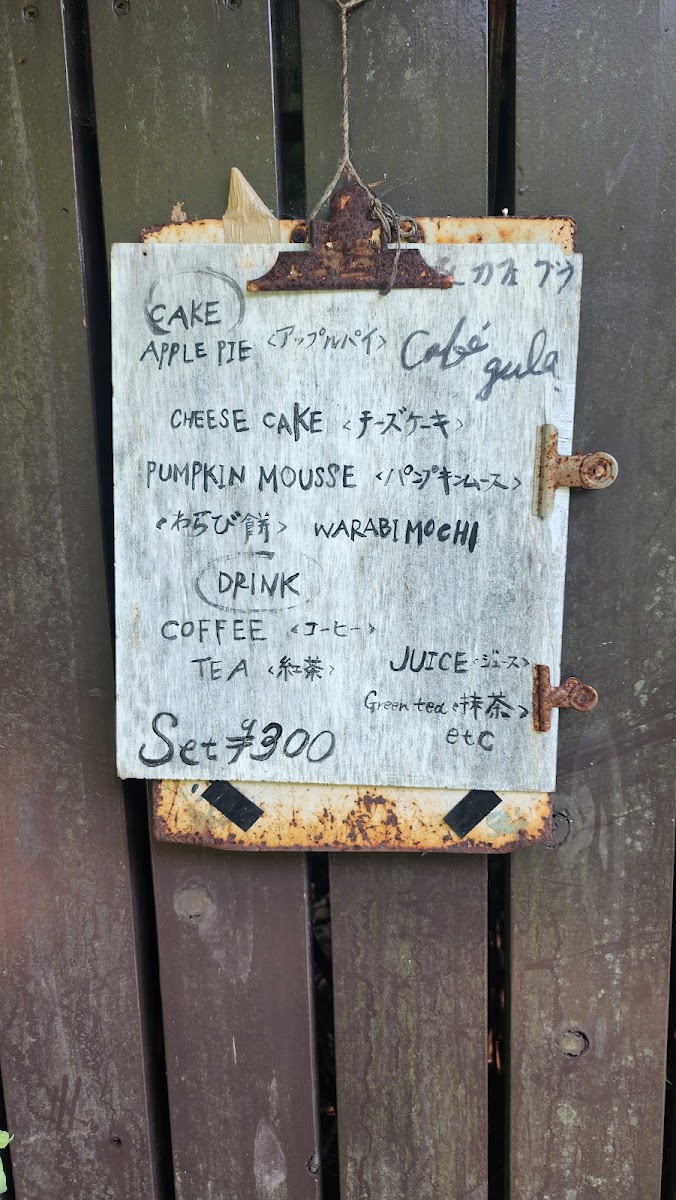 カフェ グラ
CAKE
APPLE PIE <アップルパイ>
Café gula
CHEESE CAKE <チーズケーキ>
PUMPKIN MOUSSE <パンプキンムース>
<わらび餅> WARABI MOCHI
DRINK
COFFEE <コーヒー>
TEA <紅茶> JUICE <ジュース>
Green tea <抹茶>
etc
Set ¥300